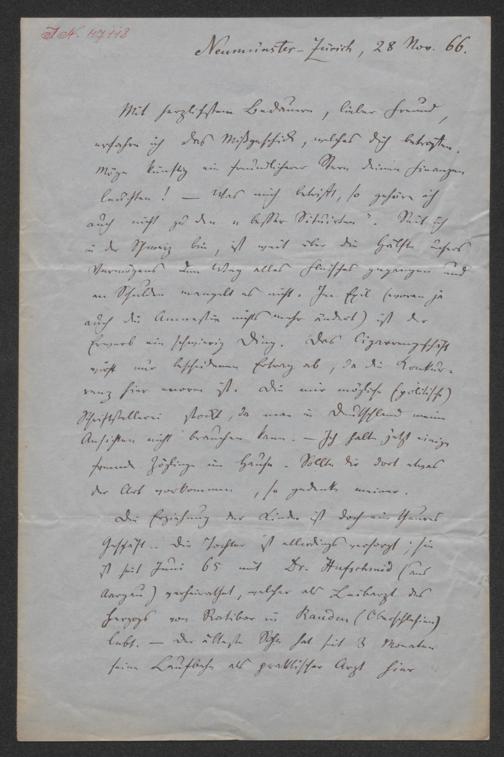 J.N. 117118
Neumünster-Zürich, 28 Nov. 66.
Mit herzlichstem Bedauern, lieber Freund,
erfahre ich das Mißgeschick, welches dich betroffen.
Möge künftig ein freundlicherer Stern deinen Finanzen
leuchten! — Was mich betrifft, so gehöre ich
auch nicht zu den „besser Situirten“. Seit ich
in der Schweiz bin, ist weit über die Hälfte unseres
Vermögens den Weg alles Fleisches gegangen und
an Schulden mangelt es nicht. Im Exil (woran ja
auch die Amnestie nichts mehr ändert) ist der
Erwerb ein schwierig Ding. Das Cigarrengeschäft
wirft nur bescheidenen Ertrag ab, da die Konkur-
renz hier enorm ist. Die mir mögliche (politische)
Schriftstellerei stockt, da man in Deutschland meine
Ansichten nicht brauchen kann. — Ich halte jetzt einige
fremde Zöglinge im Hause. Sollte dir dort etwas
der Art vorkommen, so gedenke meiner.
Die Erziehung der Kinder ist doch ein theures
Geschäft. Die Tochter ist allerdings versorgt; sie
ist seit Juni 65 mit Dr. Hufschmid (aus
Aargau) verheirathet, welcher als Leibarzt des
Herzogs von Ratibor in Rauden (Oberschlesien)
lebt. — Der älteste Sohn hat seit 3 Monaten
seine Laufbahn als praktischer Arzt hier